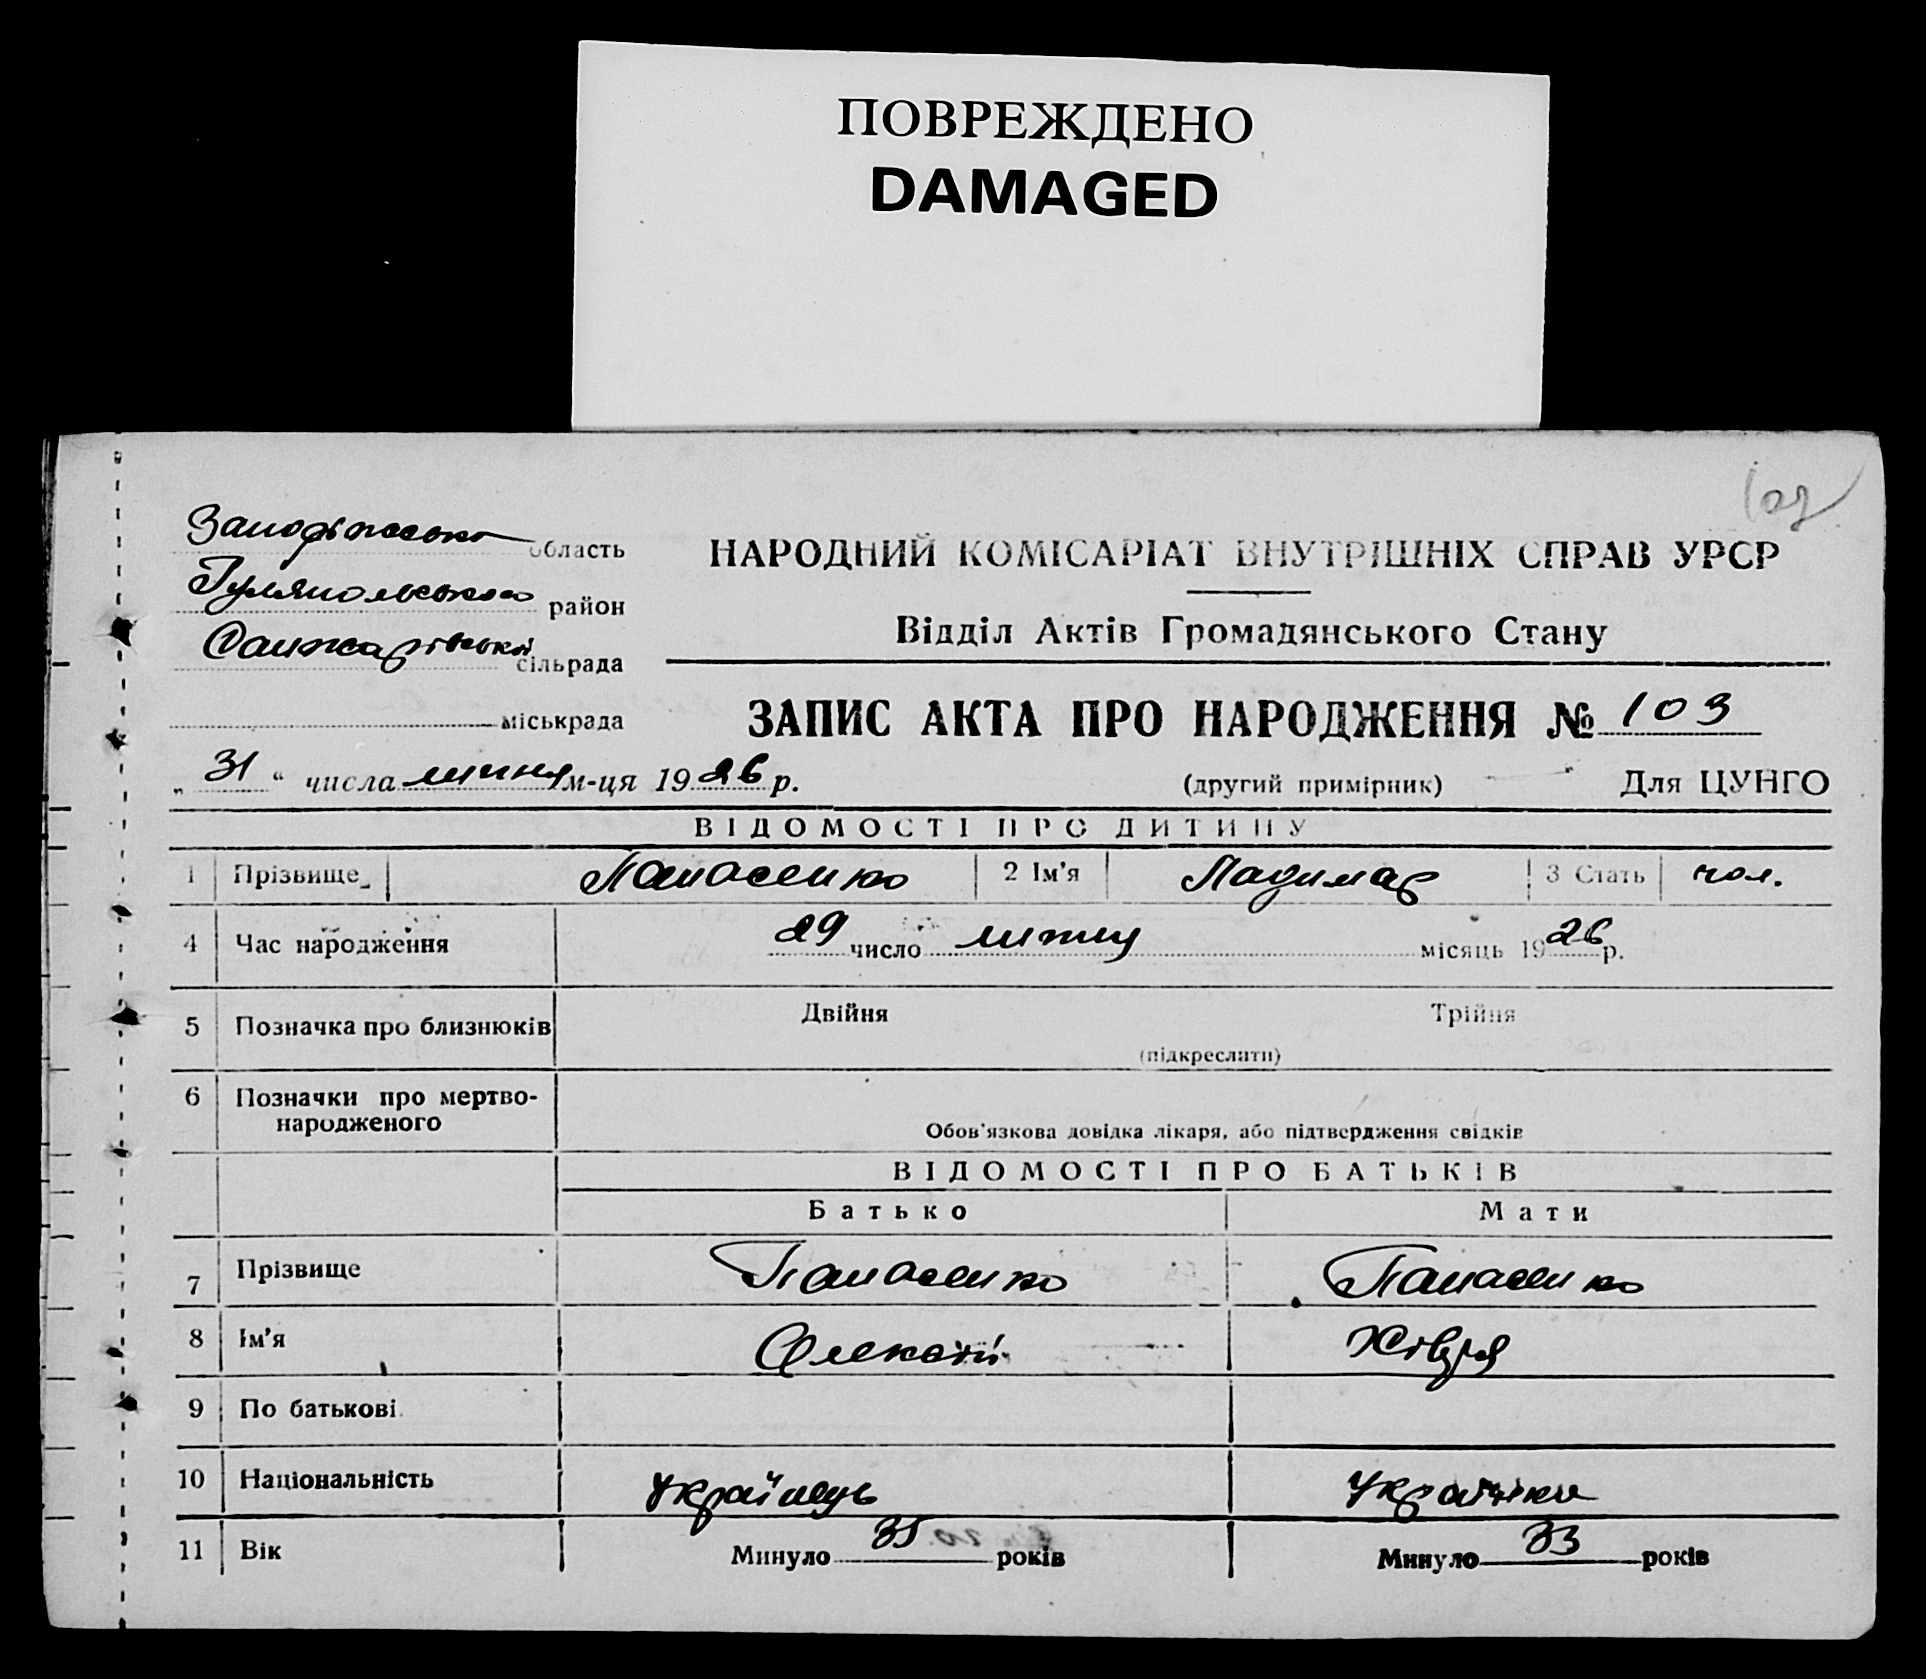 ПОВРЕЖДЕНО
DAMAGED
Запоріжська область
Гуляпольського район
Санжарівської сільрада
міськрада
НАРОДНИЙ КОМІСАРІАТ ВНУТРІШНІХ СПРАВ УРСР
Відділ Актів Громадянського Стану
ЗАПИС АКТА ПРО НАРОДЖЕННЯ № 103
„31“ числа липня м-ця 1926 р. (другий примірник) Для ЦУНГО
ВІДОМОСТІ ПРО ДИТИНУ
1 Прізвище Панасенко 2 Ім'я 3 Стать чол.
4 Час народження 29 число липня місяць 1926 р.
5 Позначка про близнюків Двійня Трійня
(підкреслити)
6 Позначки про мертво-
народженого
Обов'язкова довідка лікаря, або підтвердження свідків
ВІДОМОСТІ ПРО БАТЬКІВ
Батько Мати
7 Прізвище Панасенко Панасенко
8 Ім'я Олексій Хівря
9 По батькові
10 Національність Українець Українка
11 Вік Минуло 35 років Минуло 33 років